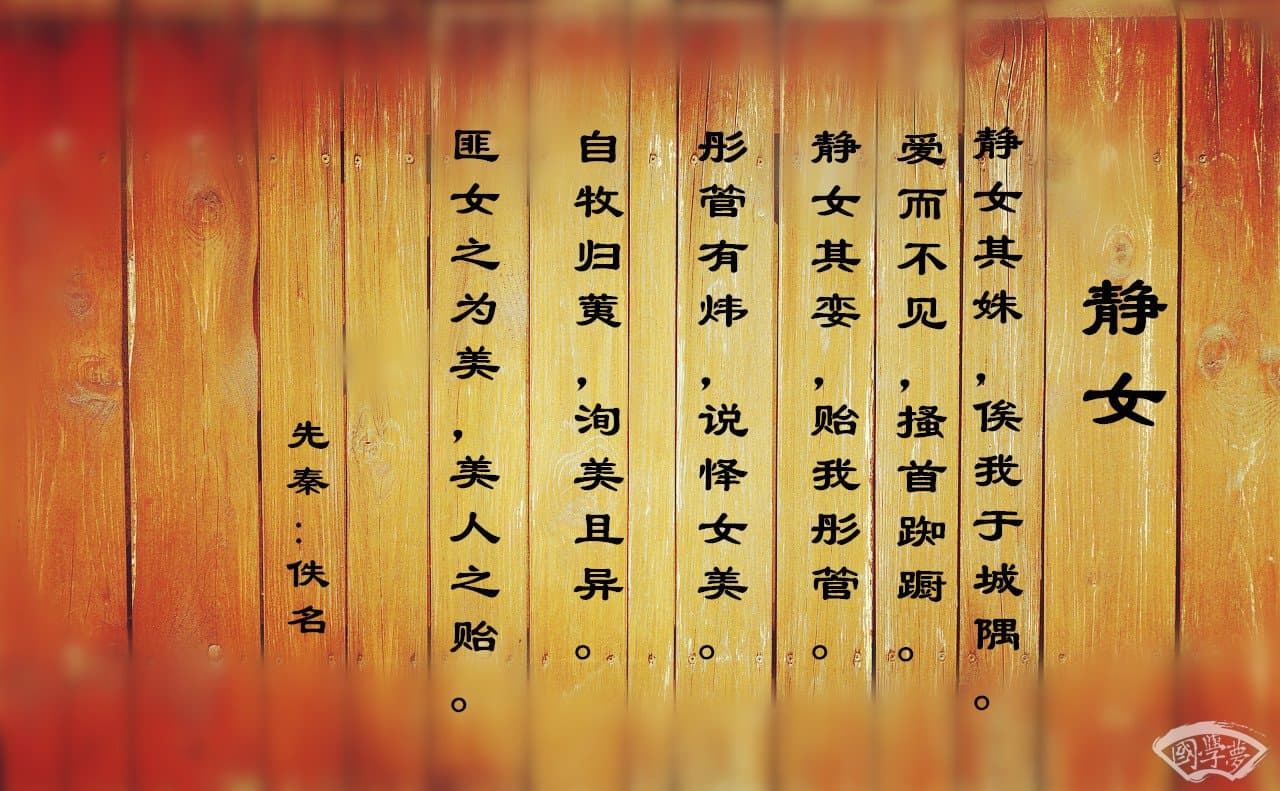 静女
静女其姝，俟我于城隅。
爱而不见，搔首踟蹰。
静女其娈，贻我彤管。
彤管有炜，说怿女美。
自牧归荑，洵美且异。
匪女之为美，美人之贻。
先秦：佚名
國學夢